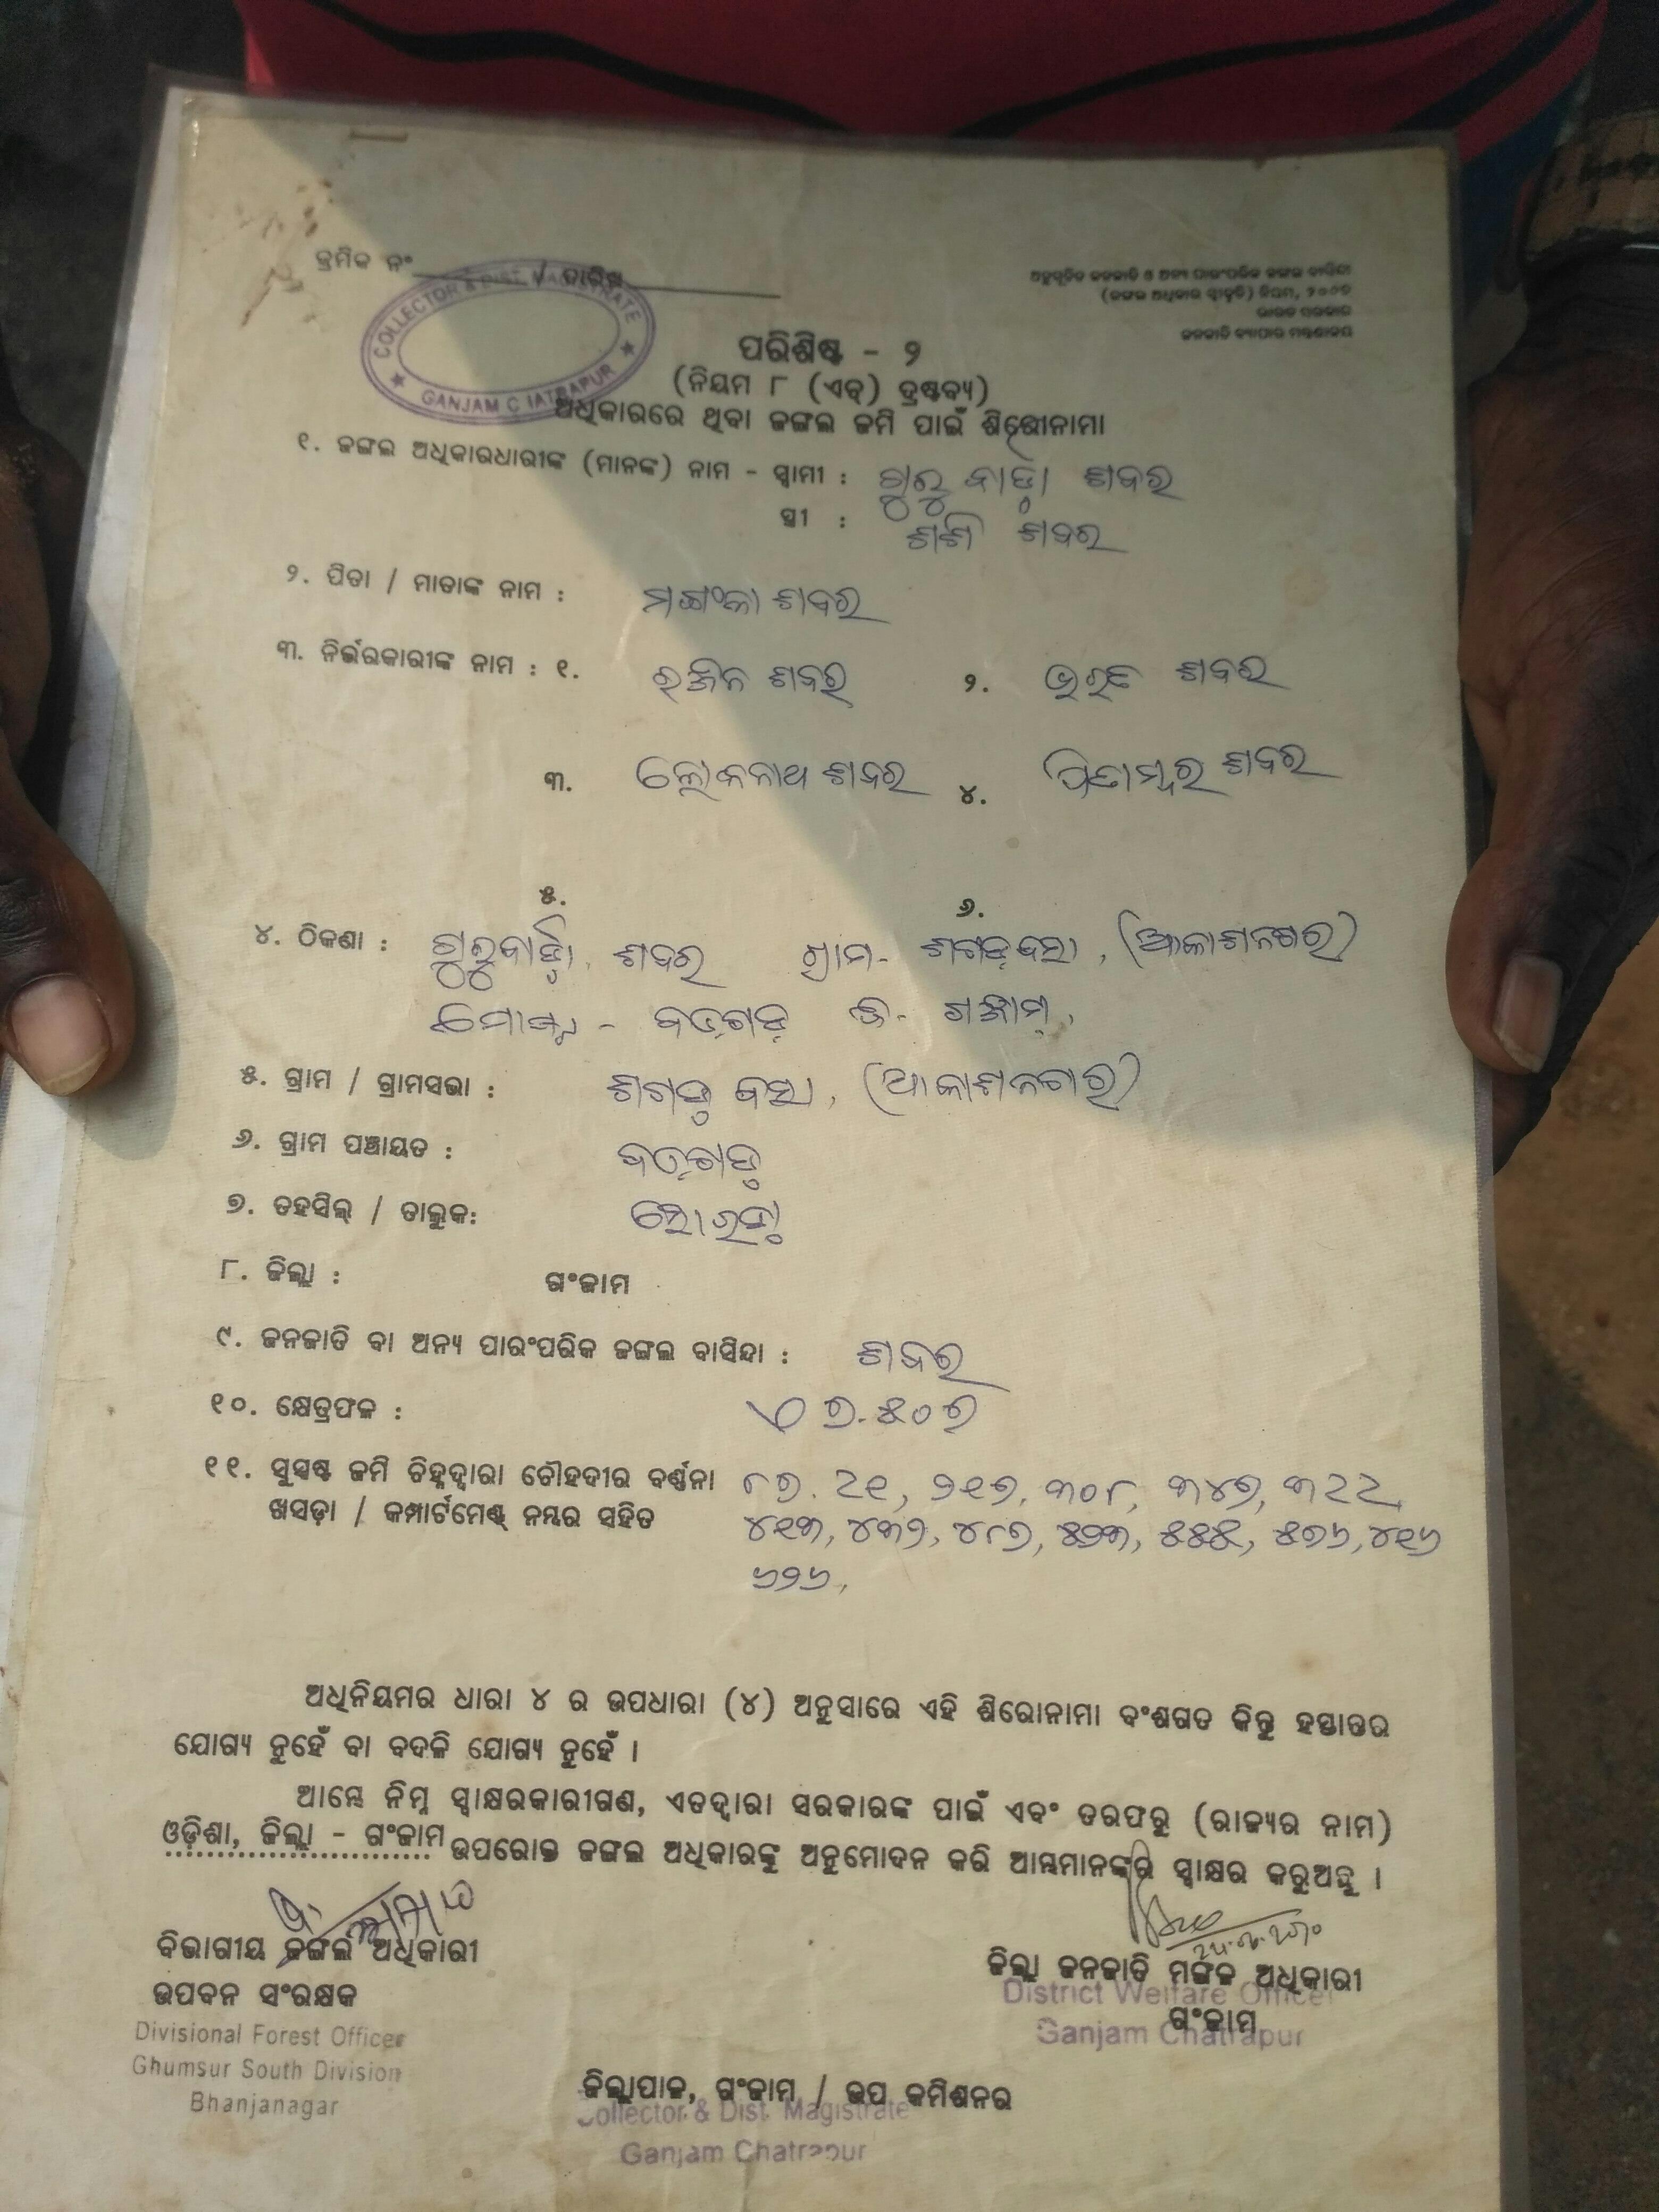 କ୍ରମିକ ନଂ / ତାରିଖ
COLLECTOR & DIST. MAGISTRATE
GANJAM
ଅନୁସୂଚିତ ଜନଜାତି ଓ ଅନ୍ୟ ପାରଂପରିକ ଜଙ୍ଗଲ ବାସିନ୍ଦା
(ଜଙ୍ଗଲ ଅଧିକାର ସ୍ୱୀକୃତି) ନିୟମ, ୨୦୦୭
ଭାରତ ସରକାର
ଜନଜାତି ବ୍ୟାପାର ମନ୍ତ୍ରଣାଳୟ
ପରିଶିଷ୍ଟ - ୨
(ନିୟମ ୮ (ଏଚ୍) ଦ୍ରଷ୍ଟବ୍ୟ)
ଅଧିକାରରେ ଥିବା ଜଙ୍ଗଲ ଜମି ପାଇଁ ଶିରୋନାମା
୧. ଜଙ୍ଗଲ ଅଧିକାରଧାରୀଙ୍କ (ମାନଙ୍କ) ନାମ - ସ୍ୱାମୀ : ଗୁରୁବାଡ଼ୀ ଶବର
ସ୍ତ୍ରୀ : ଶଶି ଶବର
୨. ପିତା / ମାତାଙ୍କ ନାମ : ଶବର
୩. ନିର୍ଭରକାରୀଙ୍କ ନାମ : ୧. ରଞ୍ଜିନ ଶବର ୨. ଭରତ ଶବର
୩. ଲୋକନାଥ ଶବର ୪. ପିତାମ୍ବର ଶବର
୫. ୬.
୪. ଠିକଣା : ଗୁରୁବାଡ଼ୀ ଶବର ଗ୍ରାମ- (ଆକାଶନଗର)
ପୋଷ୍ଟ - ବଡ଼ଗଡ଼ ଜି- ଗଞ୍ଜାମ,
୫. ଗ୍ରାମ / ଗ୍ରାମସଭା : (ଆକାଶନଗର)
୬. ଗ୍ରାମ ପଞ୍ଚାୟତ : ବଡ଼ଗଡ଼
୭. ତହସିଲ୍ / ତାଲୁକ: ସୋରଡ଼ା
୮. ଜିଲ୍ଲା : ଗଂଜାମ
୯. ଜନଜାତି ବା ଅନ୍ୟ ପାରଂପରିକ ଜଙ୍ଗଲ ବାସିନ୍ଦା : ଶବର
୧୦. କ୍ଷେତ୍ରଫଳ : ଏ ୭.୫୦୭
୧୧. ସୁସ୍ପଷ୍ଟ ଜମି ଚିହ୍ନଦ୍ୱାରା ଚୌହଦୀର ବର୍ଣ୍ଣନା ୮୭. ୯୧, ୨୧୭, ୩୦୮, ୩୪୭, ୩୯୯,
ଖସଡ଼ା / କମ୍ପାର୍ଟମେଣ୍ଟ ନମ୍ବର ସହିତ ୪୧୩, ୪୩୨, ୪୮୭, ୫୨୩, ୫୫୫, ୫୭୬, ୪୧୬
୬୨୬,
ଅଧିନିୟମର ଧାରା ୪ ର ଉପଧାରା (୪) ଅନୁସାରେ ଏହି ଶିରୋନାମା ବଂଶଗତ କିନ୍ତୁ ହସ୍ତାନ୍ତର
ଯୋଗ୍ୟ ନୁହେଁ ବା ବଦଳି ଯୋଗ୍ୟ ନୁହେଁ ।
ଆମ୍ଭେ ନିମ୍ନ ସ୍ୱାକ୍ଷରକାରୀଗଣ, ଏତଦ୍ୱାରା ସରକାରଙ୍କ ପାଇଁ ଏବଂ ତରଫରୁ (ରାଜ୍ୟର ନାମ)
ଓଡ଼ିଶା, ଜିଲ୍ଲା - ଗଂଜାମ ଉପରୋକ୍ତ ଜଙ୍ଗଲ ଅଧିକାରଙ୍କୁ ଅନୁମୋଦନ କରି ଆମ୍ଭମାନଙ୍କର ସ୍ୱାକ୍ଷର କରୁଅଛୁ ।
ବିଭାଗୀୟ ଜଙ୍ଗଲ ଅଧିକାରୀ
ଉପବନ ସଂରକ୍ଷକ
Divisional Forest Officer
Ghumsur South Division
Bhanjanagar
ଜିଲ୍ଲା ଜନଜାତି ମଙ୍ଗଳ ଅଧିକାରୀ
District Welfare Officer
ଗଂଜାମ
Ganjam Chatrapur
ଜିଲ୍ଲାପାଳ, ଗଂଜାମ / ଉପ କମିଶନର
Collector & Dist. Magistrate
Ganjam Chatrapur